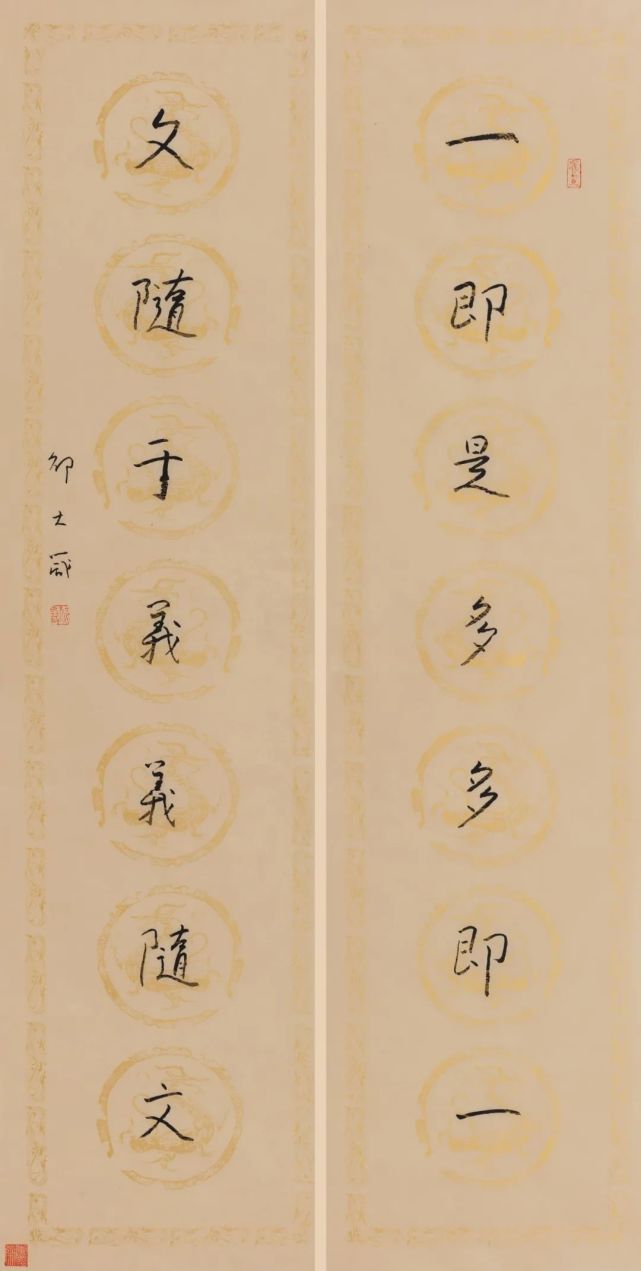 一即是多多即一
文隨于義義隨文